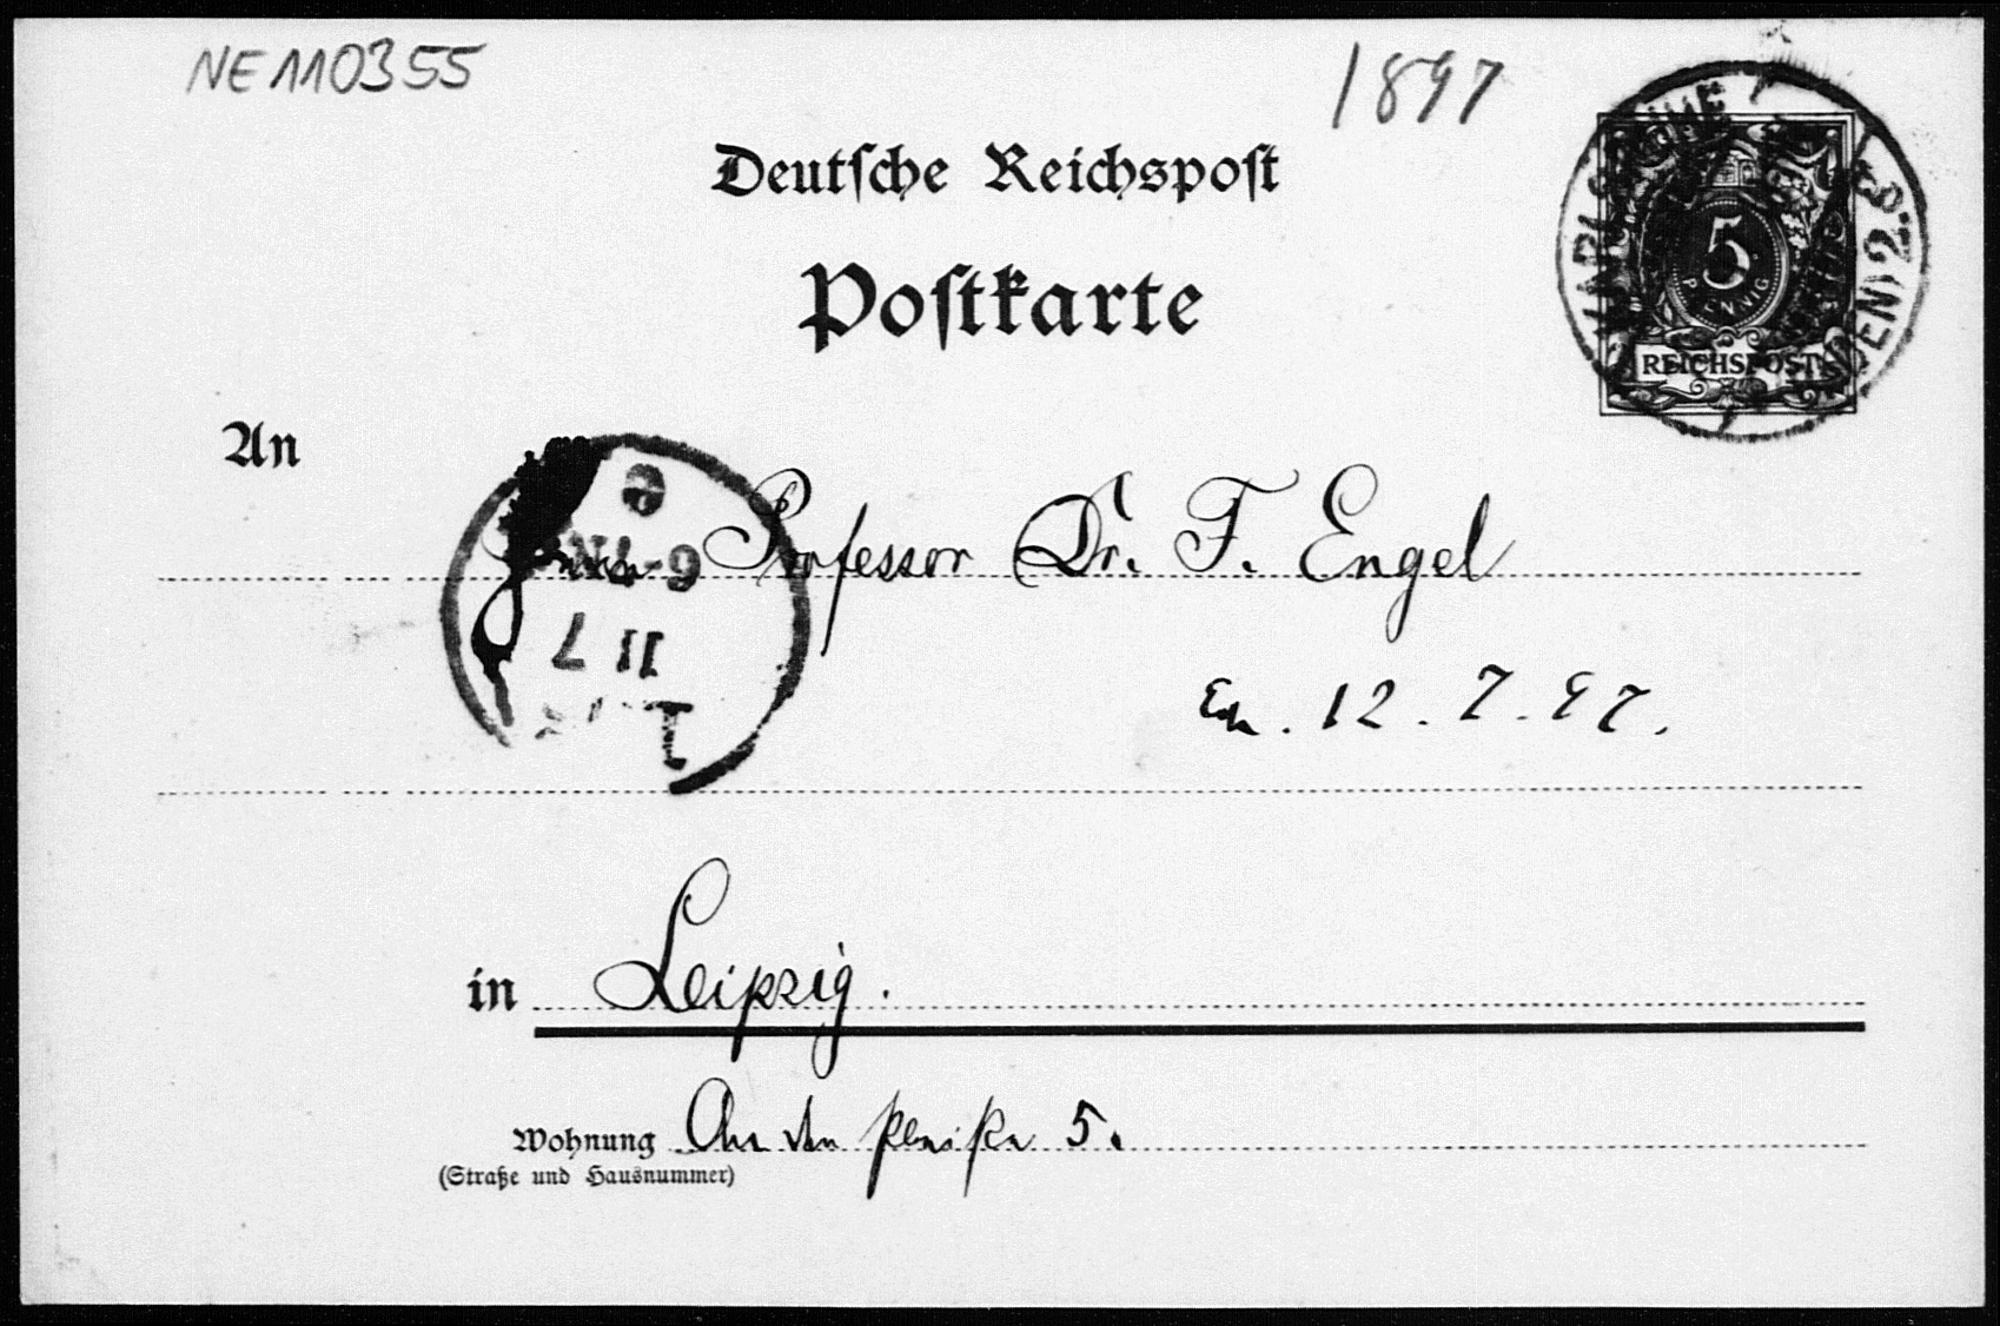 NE110355
1897
Deutsche Reichspost
Postkarte
5
PFENNIG
REICHSPOST
An
Herrn Professor Dr. F. Engel
6-7N
11 7
12. 7. 97.
in Leipzig.
Wohnung An der Pleiße 5.
(Straße und Hausnummer)